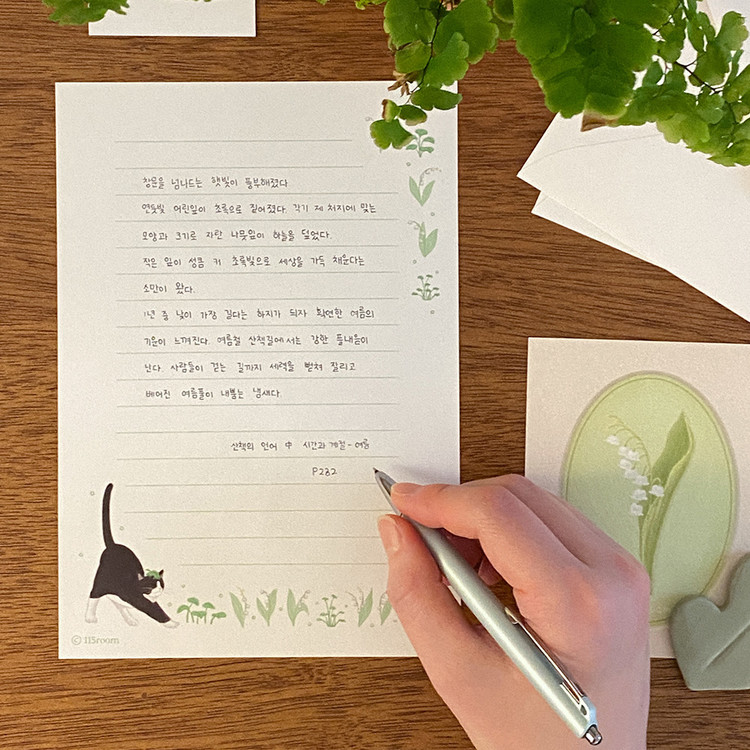 창문을 넘나드는 햇빛이 풍부해졌다
연둣빛 어린잎이 초록으로 짙어졌다. 각기 제 처지에 맞는
모양과 크기로 자란 나뭇잎이 하늘을 덮었다.
작은 잎이 성큼 커 초록빛으로 세상을 가득 채운다는
소만이 왔다.
1년 중 낮이 가장 길다는 하지가 되자 확연한 여름의
기운이 느껴진다. 여름철 산책길에서는 강한 풀내음이
난다. 사람들이 걷는 길까지 세력을 뻗쳐 잘리고
베어진 여름풀이 내뿜는 냄새다.
산책의 언어 中 시간과 계절-여름
P232
© 115room